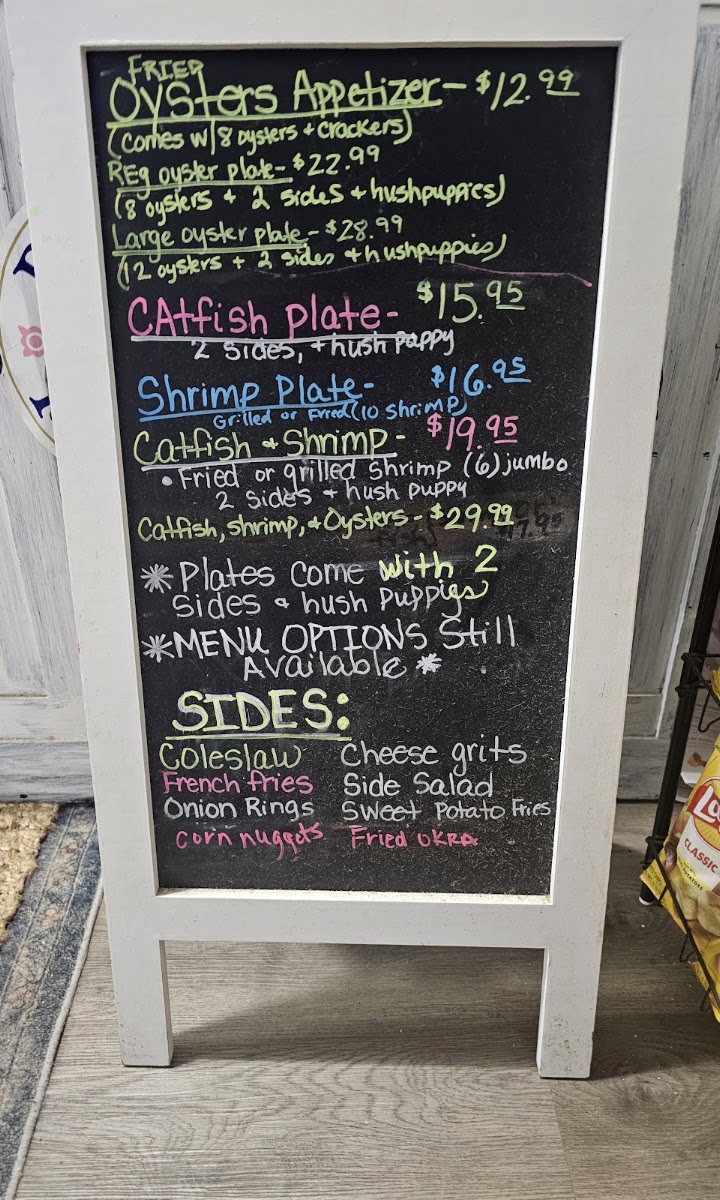 FRIED
Oysters Appetizer - $12.99
(Comes w/8 oysters + crackers)
REg oyster plate - $22.99
(8 oysters + 2 sides + hushpuppies)
Large oyster plate - $28.99
(12 oysters + 2 sides + hushpuppies)
CAtfish plate - $15.95
2 sides, + hush pappy
Shrimp Plate - $16.95
Grilled or Fried (10 shrimp)
Catfish & Shrimp - $19.95
• Fried or grilled shrimp (6) jumbo
2 sides + hush puppy
Catfish, shrimp, & Oysters - $29.99
* Plates Come with 2
sides & hush puppies
* MENU OPTIONS Still
Available *
SIDES:
Coleslaw Cheese grits
French fries Side Salad
Onion Rings Sweet Potato Fries
corn nuggets Fried OKRA
CLASSIC